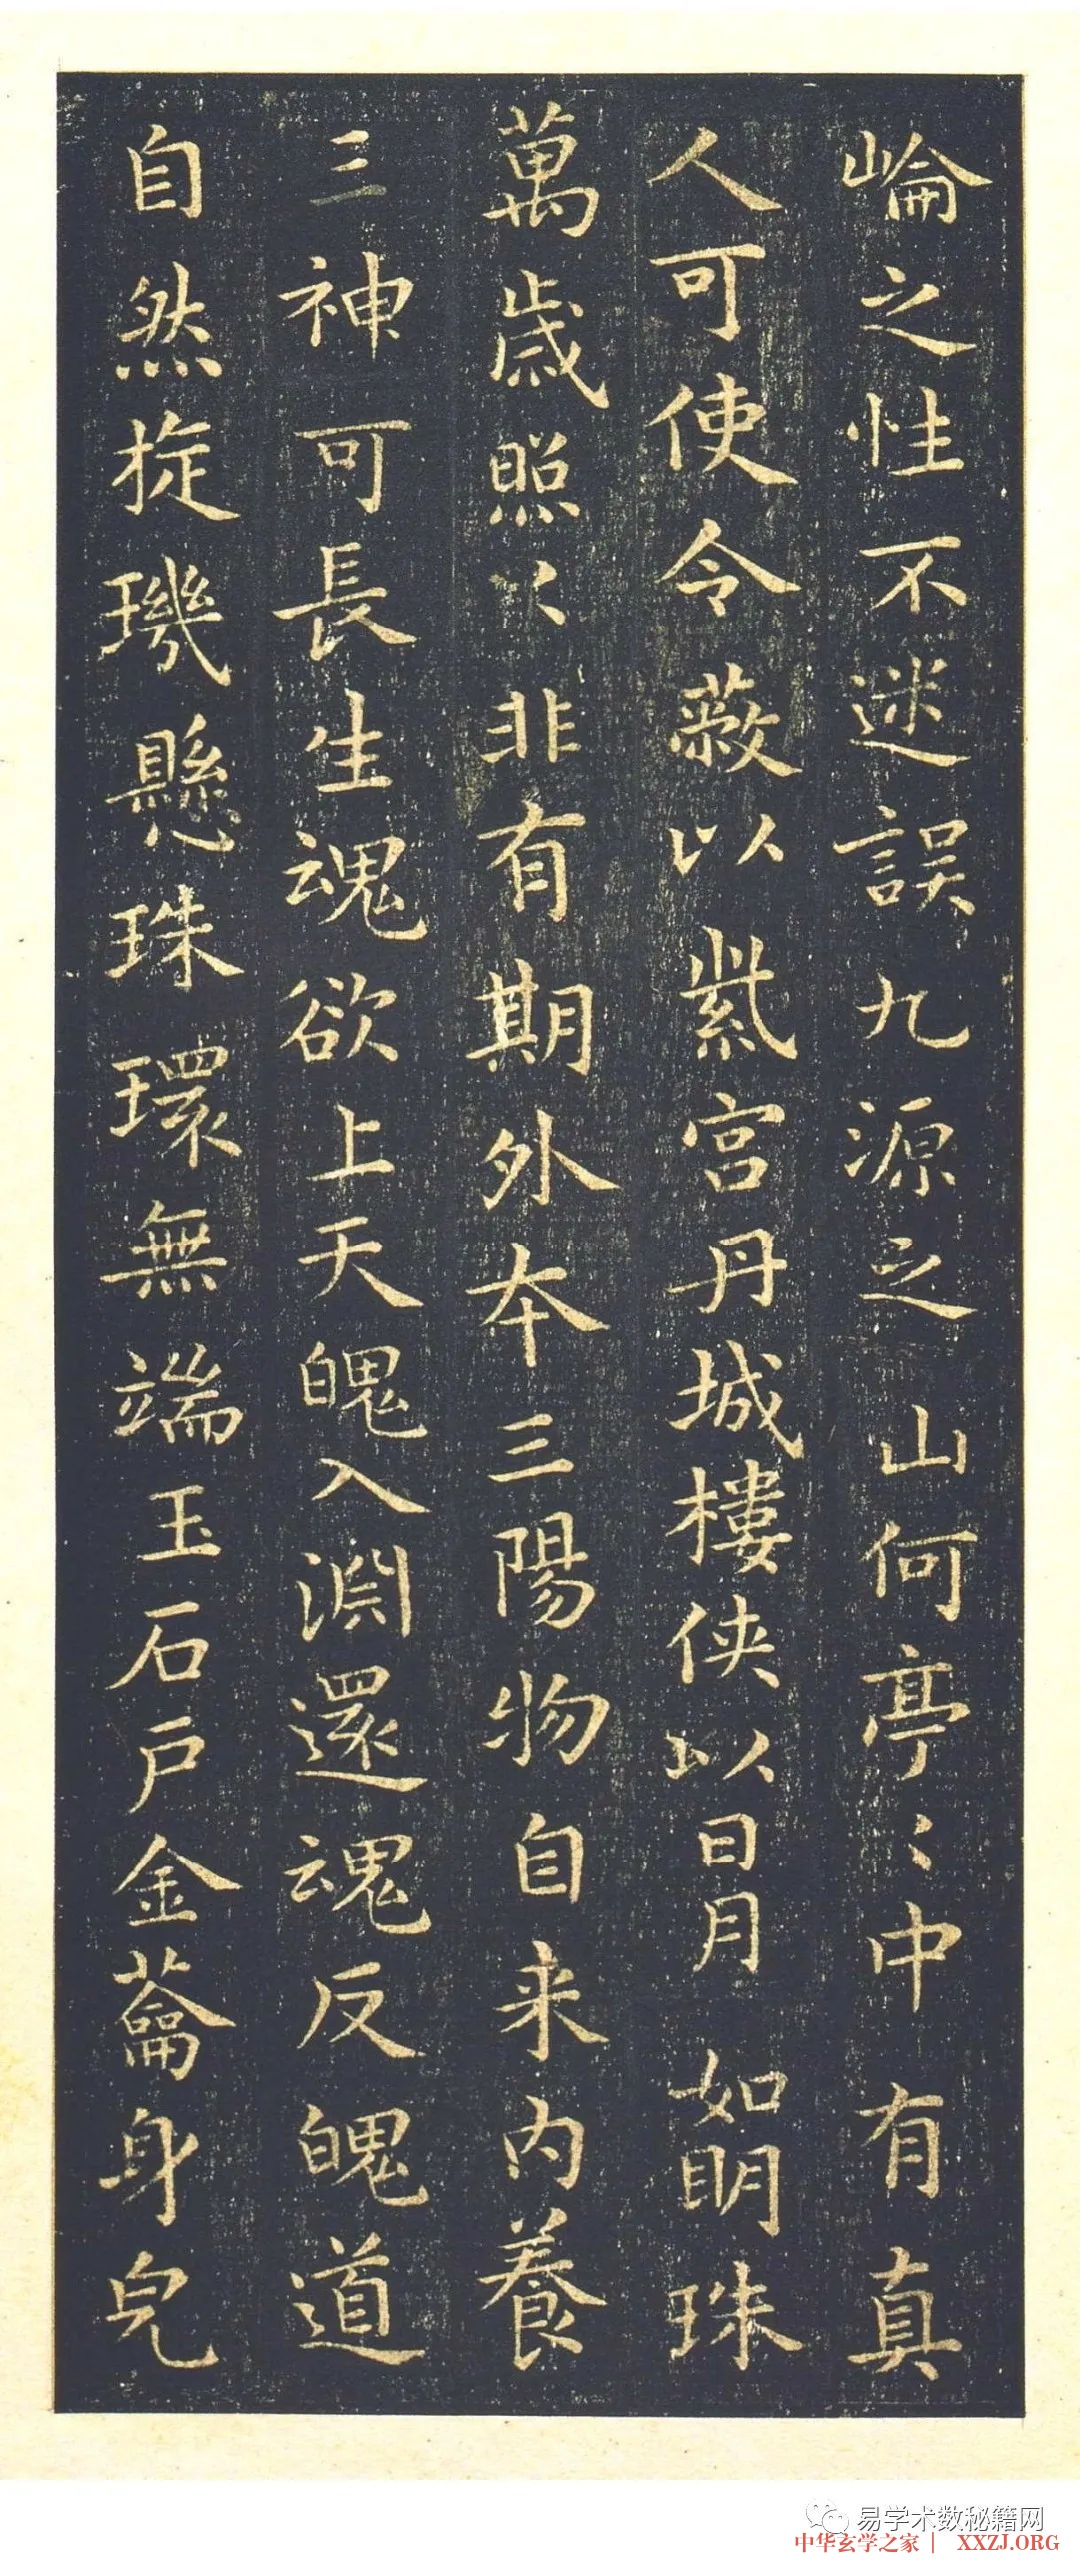 崘之性不迷誤九源之山何亭〻中有真
人可使令蔽以紫宫丹城樓侠以日月如明珠
萬歳照〻非有期外本三陽物自来内養
三神可長生魂欲上天魄入淵還魂反魄道
自然㨁璣懸珠環無端玉石戶金蘥身皃
易学术数秘籍网
中华玄学之家｜ XXZJ.ORG